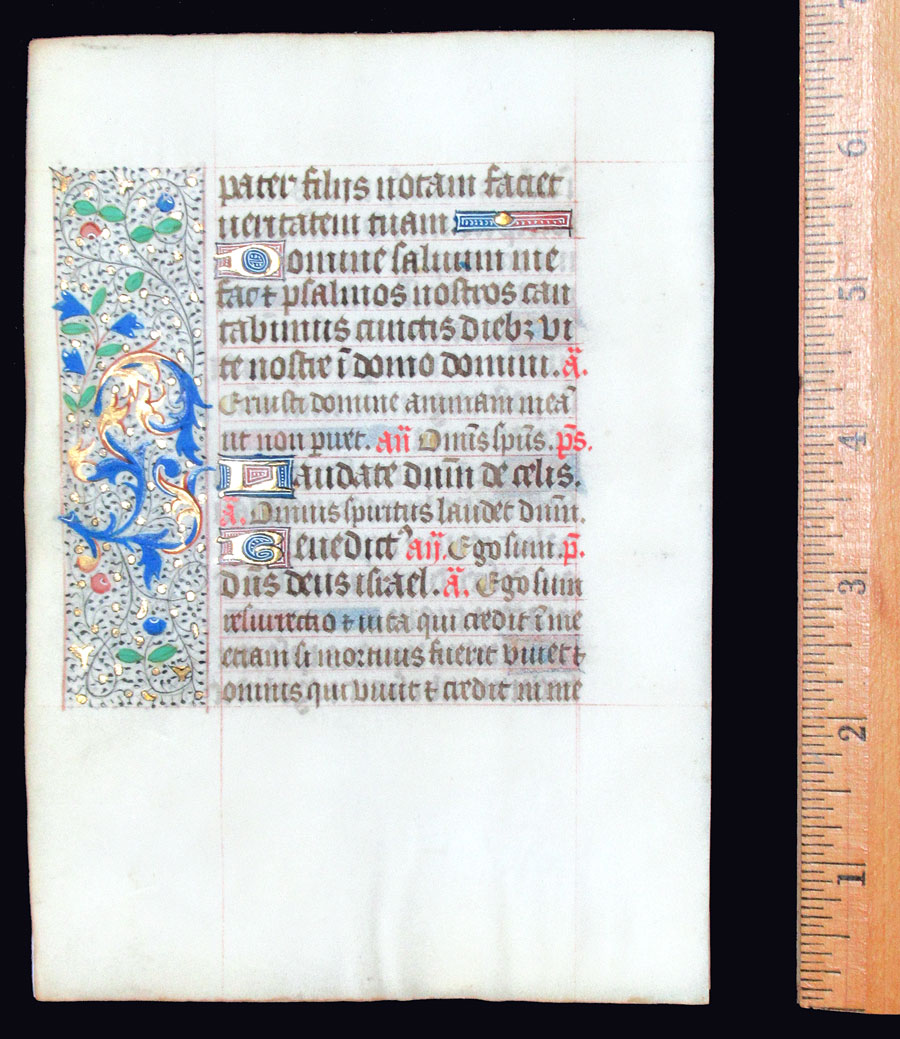 pater filijs notam faciet
veritatem tuam
Domine saluum me
fac & psalmos nostros can
tabimus cunctis dieb⁊ vi
te nostre ī domo domini. ā.
Eruisti domine animam meā
ut non piret. añ Om̄is sp̄us. p̄s.
Laudate dūm de celis.
ā. Omnis spiritus laudet dūm.
Benedictꝰ añ. Ego sum p̄.
dn̄s deus israel. ā. Ego sum
resurrectio & vita qui credit ī me
etiam si mortuus fuerit viuet &
omnis qui viuit & credit in me
1
2
3
4
5
6
7